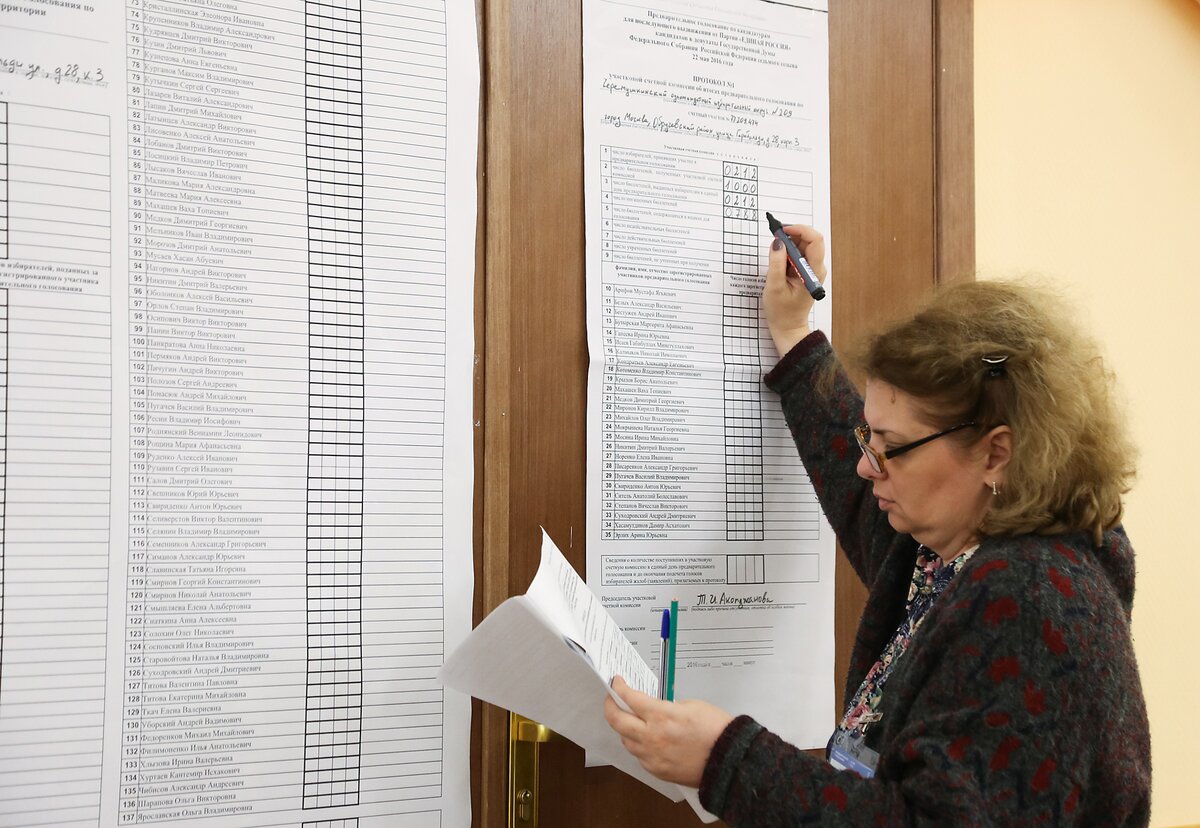 ритории
ьди ул., д 28, к. 3
о избирателей, поданных за
гистрированного участника
ительного голосования
74 Кристаллинская Элеонора Ивановна
75 Крупенников Владимир Александрович
76 Кудрявцев Дмитрий Викторович
77 Кузин Дмитрий Львович
78 Кузнецова Анна Евгеньевна
79 Курганов Максим Владимирович
80 Кутычкин Сергей Сергеевич
81 Лазарев Виталий Александрович
82 Лапин Дмитрий Михайлович
83 Латынцев Александр Викторович
84 Лисовенко Алексей Анатольевич
85 Лобанов Дмитрий Викторович
86 Лосицкий Владимир Петрович
87 Лысаков Вячеслав Иванович
88 Маликова Мария Александровна
89 Матвеева Мария Алексеевна
90 Махашев Ваха Топиевич
91 Медков Димитрий Георгиевич
92 Мельников Иван Владимирович
93 Морозов Дмитрий Анатольевич
94 Мусаев Хасан Абуевич
95 Нагорнов Андрей Викторович
96 Никитин Дмитрий Валерьевич
97 Оболонков Алексей Васильевич
98 Орлов Степан Владимирович
99 Осипович Виктор Викторович
100 Панин Виктор Викторович
101 Панкратова Анна Николаевна
102 Пермяков Андрей Викторович
103 Пичугин Андрей Викторович
104 Полозов Сергей Андреевич
105 Помасюк Андрей Михайлович
106 Пугачев Василий Владимирович
107 Ресин Владимир Иосифович
108 Роднянский Вениамин Леонидович
109 Рощина Мария Афанасьевна
110 Руденко Алексей Иванович
111 Рузавин Сергей Иванович
112 Салов Дмитрий Олегович
113 Свешников Юрий Юрьевич
114 Свириденко Антон Юрьевич
115 Селиверстов Виктор Валентинович
116 Селянин Виктор Владимирович
117 Семенников Александр Григорьевич
118 Симанов Александр Юрьевич
119 Славинская Татьяна Игоревна
120 Смирнов Георгий Константинович
121 Смирнов Николай Анатольевич
122 Смышляева Елена Альбертовна
123 Снаткина Анна Алексеевна
124 Солохин Олег Николаевич
125 Сосновский Илья Владимирович
126 Старовойтова Наталья Владимировна
127 Суходровский Андрей Дмитриевич
128 Титова Валентина Павловна
129 Титова Екатерина Михайловна
130 Ткач Елена Валериевна
131 Уборский Андрей Вадимович
132 Федоренков Михаил Михайлович
133 Филимоненко Илья Анатольевич
134 Хлызова Ирина Валерьевна
135 Хуртаев Кантемир Исхакович
136 Чибисов Александр Андреевич
137 Шарапова Ольга Викторовна
Ярославская Ольга Владимировна
Предварительное голосование по кандидатурам
для последующего выдвижения от Партии «ЕДИНАЯ РОССИЯ»
кандидатов в депутаты Государственной Думы
Федерального Собрания Российской Федерации седьмого созыва
22 мая 2016 года
ПРОТОКОЛ №1
участковой счетной комиссии об итогах предварительного голосования по
Черемушкинский одномандатный избирательный округ № 209
счетный участок №
город Москва, Обручевский район улица Гарибальди, д 28, корп. 3
Участковая счетная комиссия
1 число избирателей, принявших участие в предварительном голосовании 0 2 1 2
2 число бюллетеней, полученных участковой счетной комиссией 1 0 0 0
3 число бюллетеней, выданных избирателям в единый день предварительного голосования 0 2 1 2
4 число погашенных бюллетеней 0 7 8 8
5 число бюллетеней, содержащихся в ящиках для голосования
6 число недействительных бюллетеней
7 число действительных бюллетеней
8 число утраченных бюллетеней
9 число бюллетеней, не учтенных при получении
фамилия, имя, отчество зарегистрированных
участников предварительного голосования
10 Арифов Мустафа Яхяевич
11 Белых Александр Васильевич
12 Бестужев Андрей Иванович
13 Бутырская Маргарита Афанасьевна
14 Гапеева Ирина Юрьевна
15 Исаев Габибуллах Минетуллахович
16 Калмыков Николай Николаевич
17 Кондратьев Александр Евгеньевич
18 Котоменко Владимир Константинович
19 Крылов Борис Анатольевич
20 Махашев Ваха Топиевич
21 Медков Дмитрий Георгиевич
22 Миронов Кирилл Владимирович
23 Михайлов Олег Владимирович
24 Мокрышева Наталья Георгиевна
25 Мосина Ирина Михайловна
26 Никитин Дмитрий Валерьевич
27 Норенко Елена Ивановна
28 Писаренков Александр Григорьевич
29 Пугачев Василий Владимирович
30 Свириденко Антон Юрьевич
31 Ситель Анатолий Болеславович
32 Степанов Вячеслав Викторович
33 Суходровский Андрей Дмитриевич
34 Хасамутдинов Дамир Асхатович
35 Эрлих Арина Юрьевна
Сведения о количестве поступивших в участковую
счетную комиссию в единый день предварительного
голосования и до окончания подсчета голосов
избирателей жалоб (заявлений), прилагаемых к протоколу
Председатель участковой
счетной комиссии
Т. И. Акопджанова
2016 года в часов минут